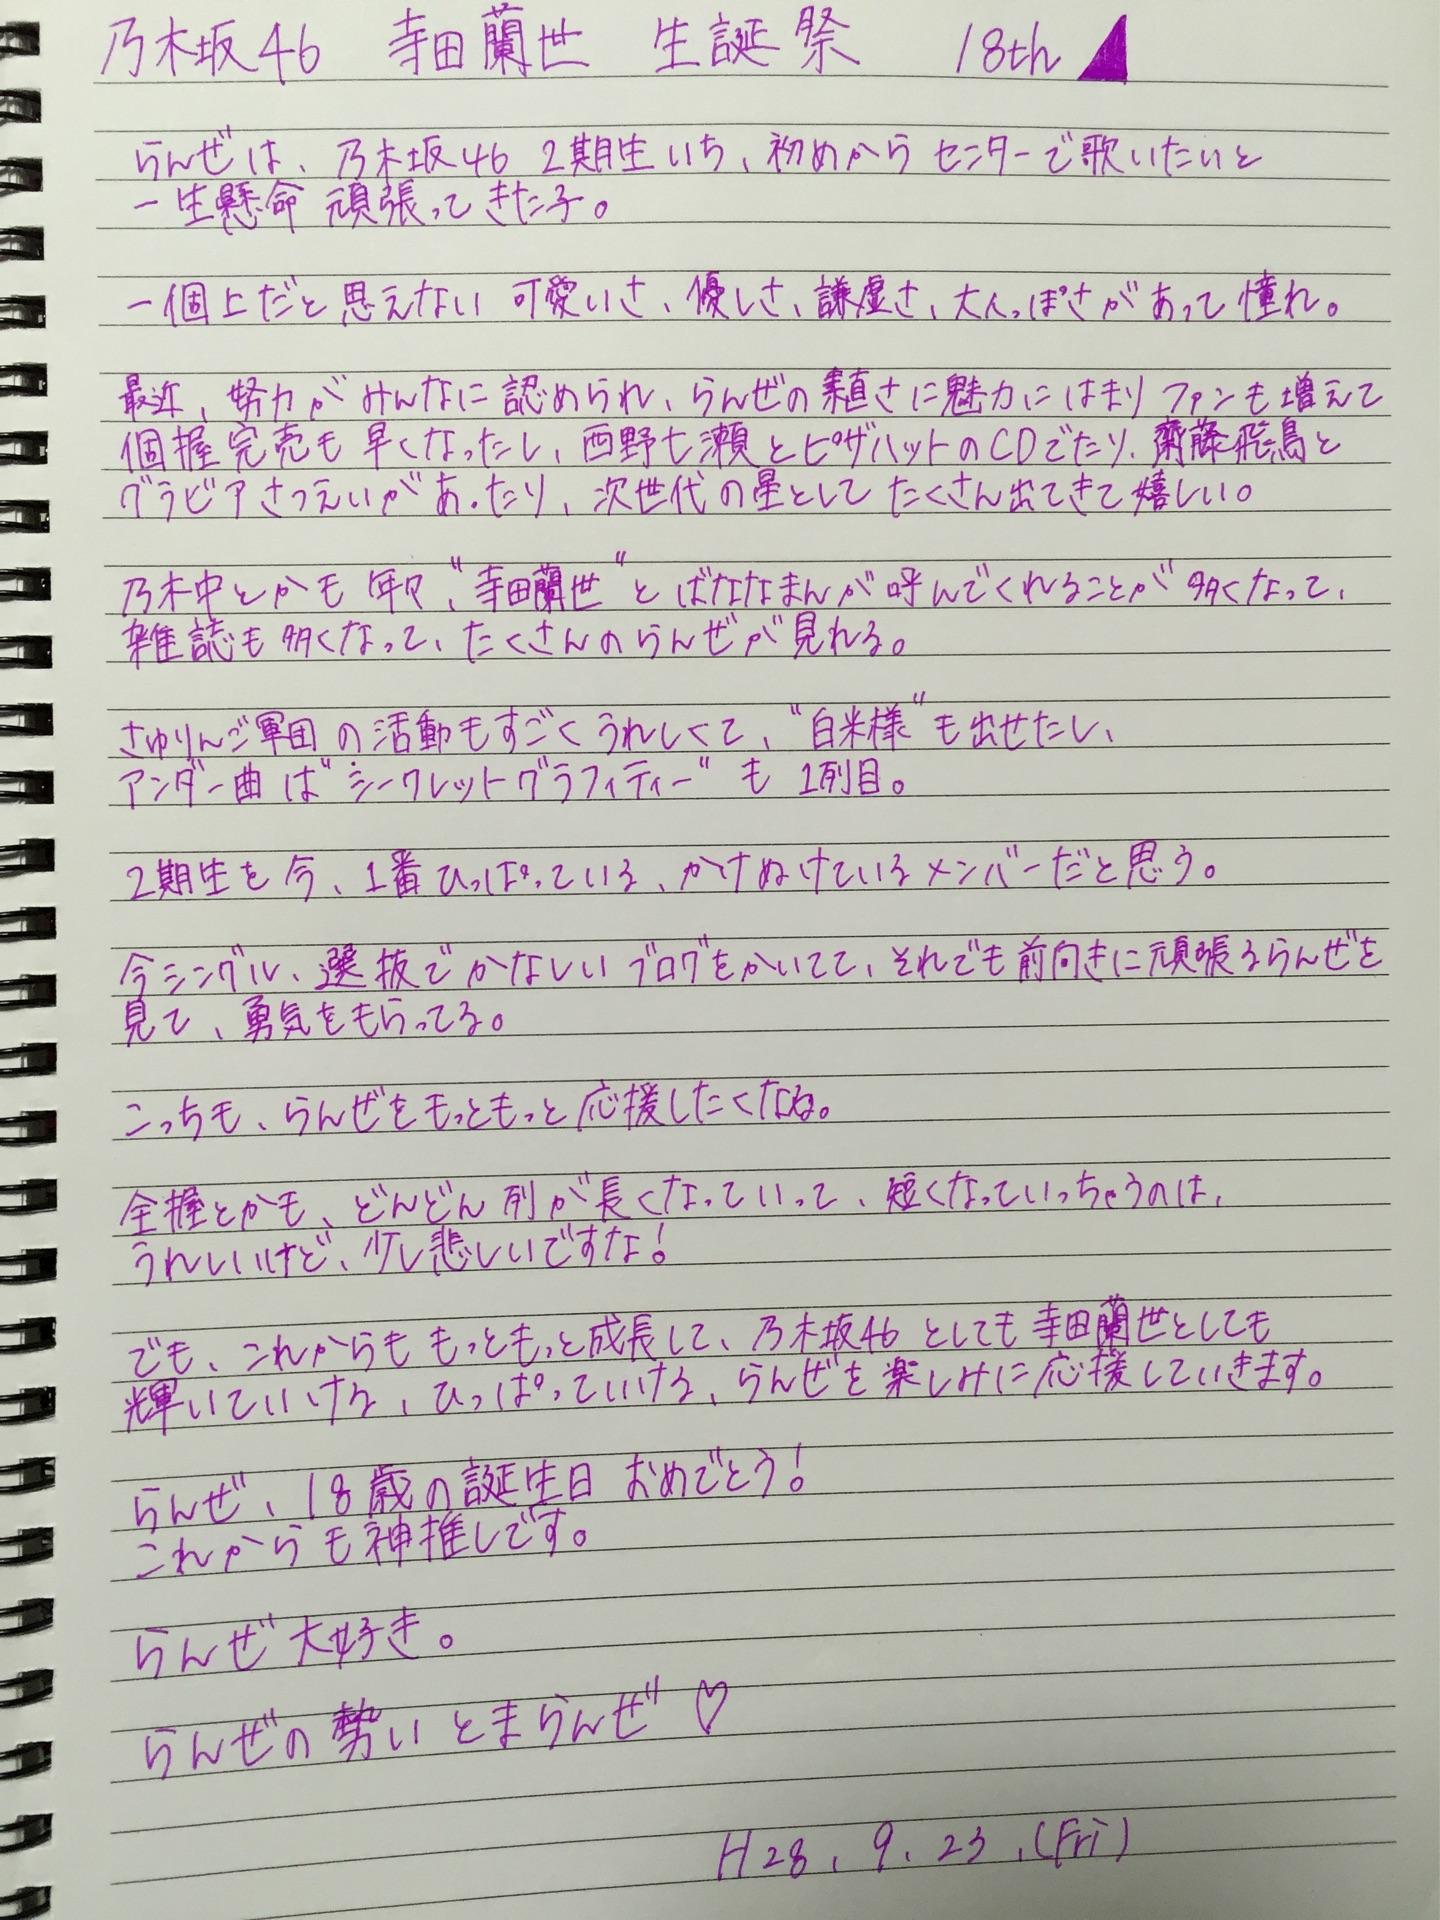 乃木坂46 寺田蘭世 生誕祭 18th
らんぜは、乃木坂46 2期生いち、初めからセンターで歌いたいと
一生懸命 頑張ってきた子。
一個上だと思えない 可愛いさ、優しさ、謙虚さ、大人っぽさがあって憧れ。
最近、努力がみんなに認められ、らんぜの素直さに魅力にはまりファンも増えて
個握完売も早くなったし、西野七瀬とピザハットのCDでたり、齋藤飛鳥と
グラビアさつえいがあったり、次世代の星としてたくさん出てきて嬉しい。
乃木中とかも年々、"寺田蘭世"とばななまんが呼んでくれることが多くなって、
雑誌も多くなって、たくさんのらんぜが見れる。
さゆりんご軍団の活動もすごくうれしくて、"白米様"も出せたし、
アンダー曲は"シークレットグラフィティー"も1列目。
2期生を今、1番ひっぱっている、かけぬけているメンバーだと思う。
今シングル、選抜でかなしいブログをかいてて、それでも前向きに頑張るらんぜを
見て、勇気をもらってる。
こっちも、らんぜをもっともっと応援したくなる。
全握とかも、どんどん列が長くなっていって、短くなっていっちゃうのは、
うれしいけど、少し悲しいですな!
でも、これからももっともっと成長して、乃木坂46としても寺田蘭世としても
輝いていける、ひっぱっていける、らんぜを楽しみに応援していきます。
らんぜ、18歳の誕生日 おめでとう!
これからも神推しです。
らんぜ大好き。
らんぜの勢いとまらんぜ♡
H28.9.23.(Fri)